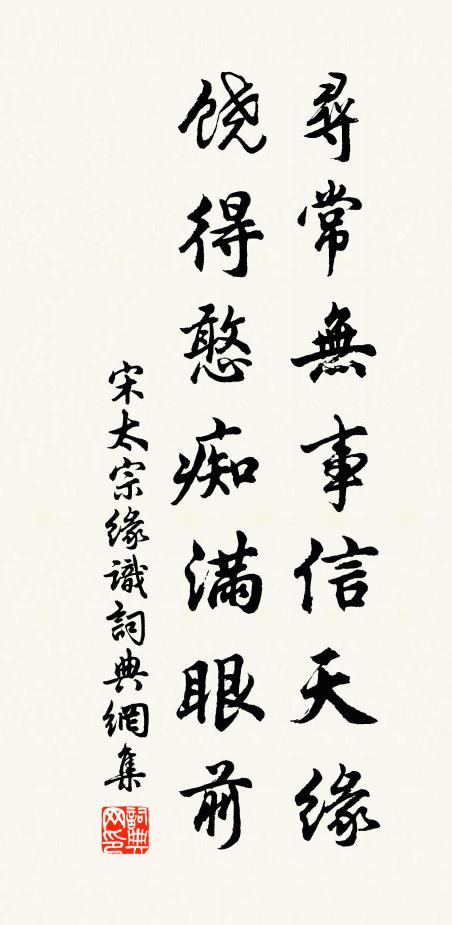 尋常無事信天緣
饒得憨痴滿眼前
宋太宗緣識詞典網集
詞典網印